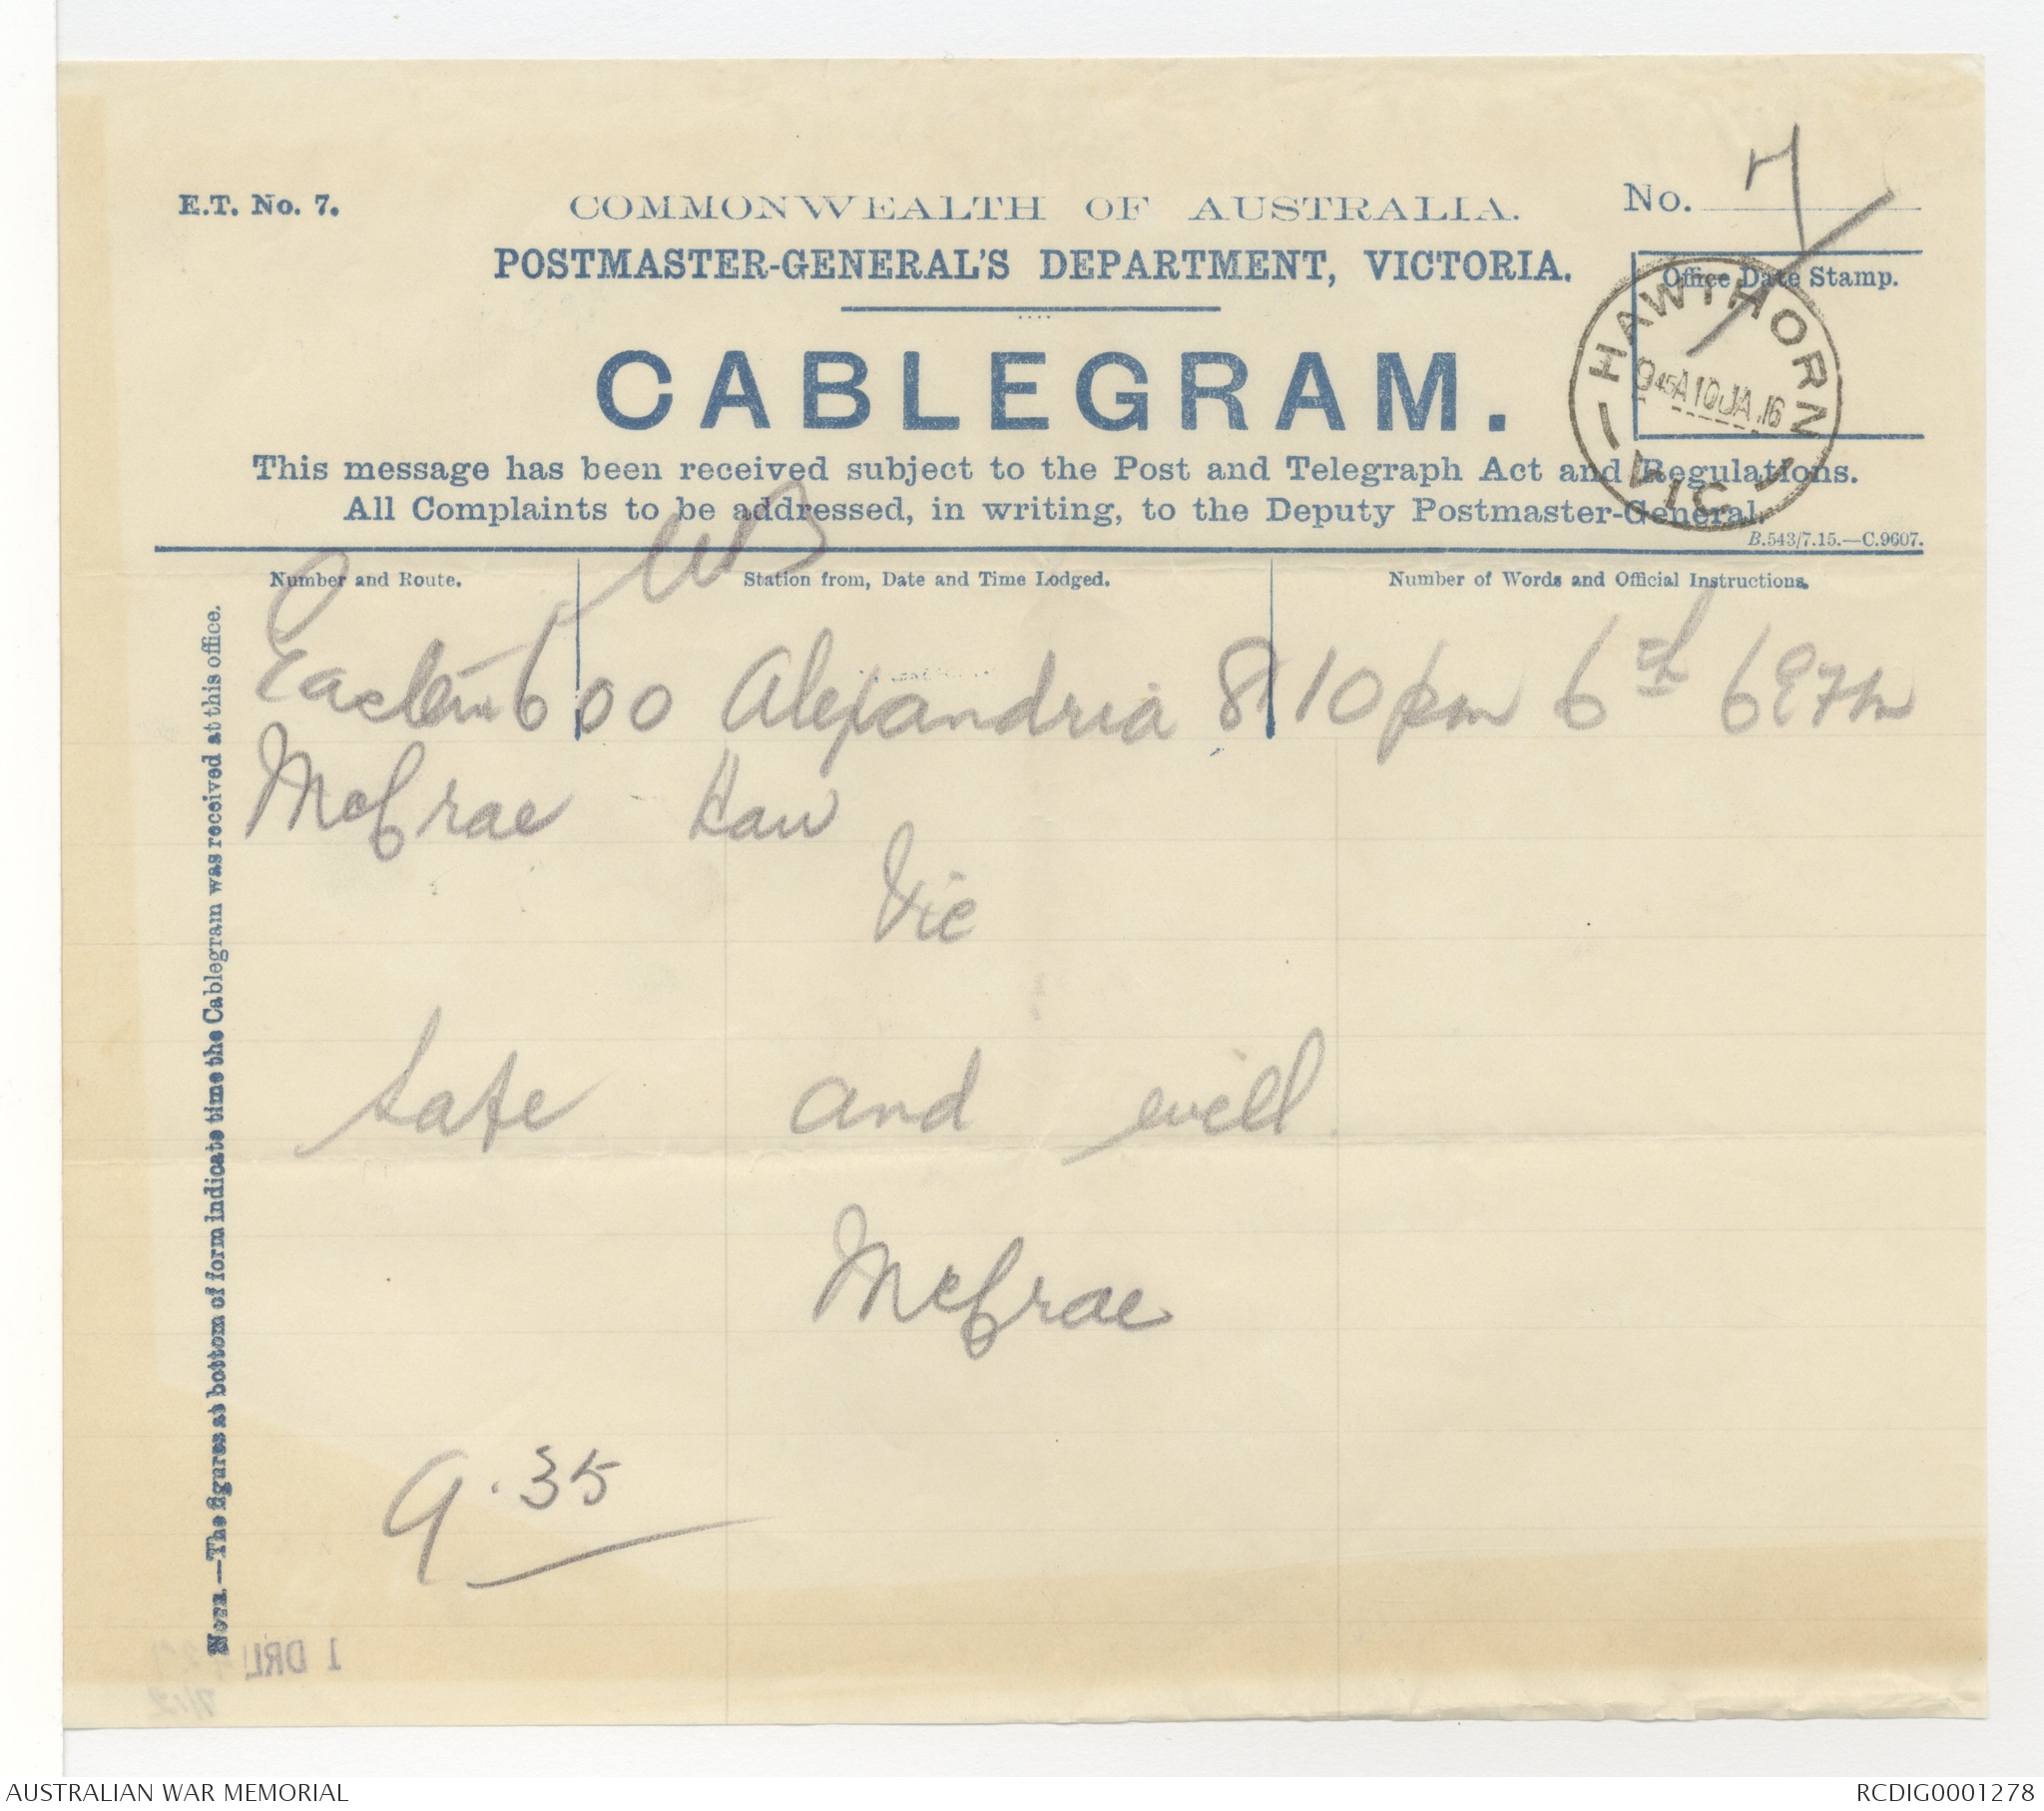 E.T. No. 7.
COMMONWEALTH OF AUSTRALIA.
No. 7
POSTMASTER-GENERAL'S DEPARTMENT, VICTORIA.
Office Date Stamp.
HAWTHORN
945A 10 JA 16
VIC
CABLEGRAM.
This message has been received subject to the Post and Telegraph Act and Regulations.
All Complaints to be addressed, in writing, to the Deputy Postmaster-General.
B.543/7.15.—C.9607.
Number and Route.
Station from, Date and Time Lodged.
Number of Words and Official Instructions.
Eastern 600 Alexandria 8 10 pm 6th
McCrae Haw
Vic
Safe and well
McCrae
9.35
NOTE.—The figures at bottom of form indicate time the Cablegram was received at this office.
1 DRL
AUSTRALIAN WAR MEMORIAL
RCDIG0001278